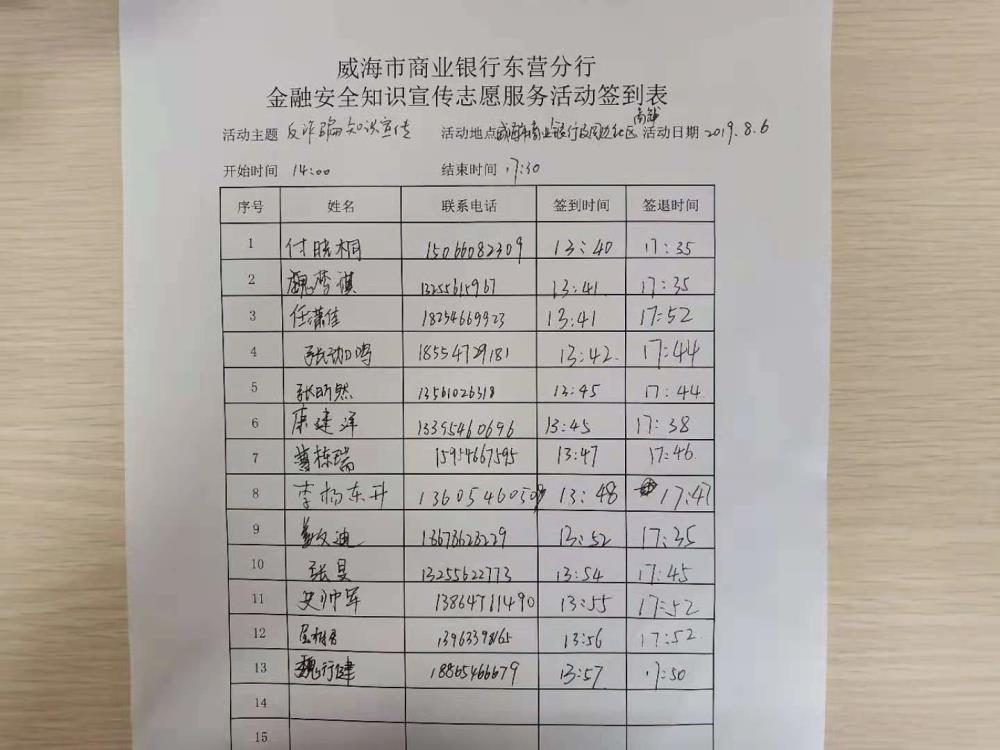 威海市商业银行东营分行
金融安全知识宣传志愿服务活动签到表
活动主题 反诈骗知识宣传 活动地点 威海市商业银行及周边社区 商铺 活动日期 2019.8.6
开始时间 14:00 结束时间 17:30
序号 姓名 联系电话 签到时间 签退时间
1 付晓桐 15066082309 13:40 17:35
2 魏梦琪 13255615967 13:41 17:35
3 任潇佳 18254669923 13:41 17:52
4 18554729181 13:42 17:44
5 张昕然 13561026318 13:45 17:44
6 康建泽 13395460696 13:45 17:38
7 15954667595 13:47 17:46
8 李杨东升 13:48 17:47
9 18678628229 13:52 17:35
10 张昊 13255622773 13:54 17:45
11 史帅军 13864711490 13:55 17:52
12 13:56 17:52
13 魏行健 18865466679 13:57 17:50
14
15